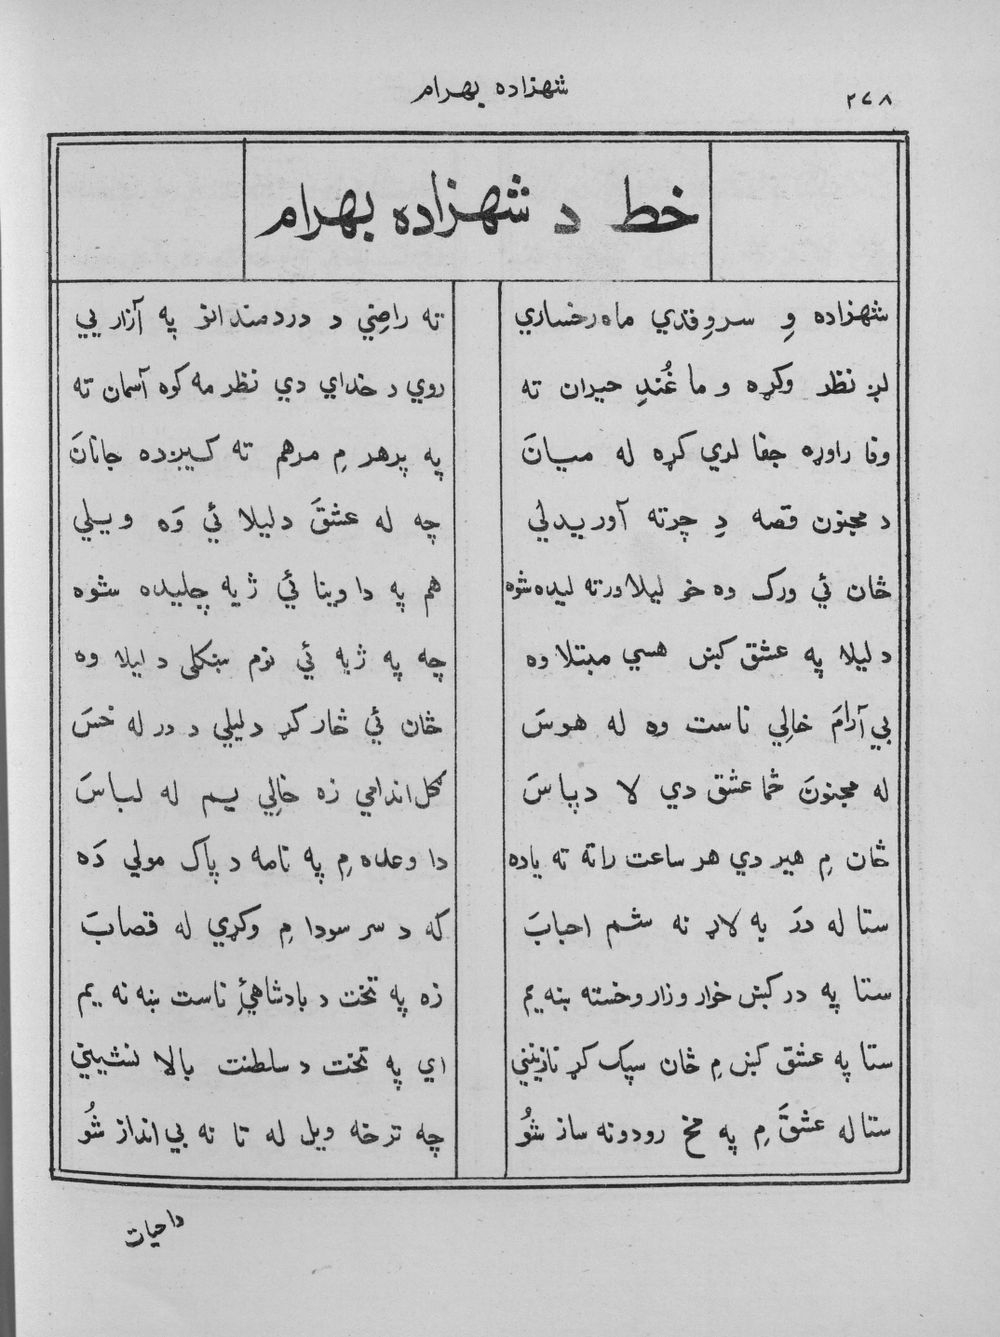 ۲۷۸
شهزاده بهرام
خط د شهزاده بهرام
شهزاده وِ سروِقدي ماه رخساري ته راضِي د دردمندانو په آزار يې
لږ نظر وکړه و ما غُندِ حيران ته روي د خداي دي نظر مه کوه آسمان ته
وفا راوړه جفا لري کړه له ميانَ په پرهر مِ مرهم ته کيږده جانانَ
د مجنون قصه دِ چرته آوريدلي چه له عشقَ د ليلا ئي وَه ويلي
ځان ئي ورک وه خو ليلا ورته ليده شوه هم په دا وينا ئي ژبه چليده شوه
د ليلا په عشق کښ هسي مبتلا وه چه په ژبه ئي نوم ښکلی د ليلا وه
بي آرامَ خالِي ناست وه له هوسَ ځان ئي ځار کړ د ليلي د در له خسَ
له مجنونَ څما عشق دي لا د پاسَ گل اندامي زه خالِي يم له لباسَ
ځان مِ هير دي هر ساعت راته ته ياده دا وعده مِ په نامه د پاک مولي دَه
ستا له درَ به لاړ نه شم احبابَ که د سر سودا مِ وکړي له قصابَ
ستا په در کښ خوار و زار وخسته ښه يم زه په تخت د بادشاهئِ ناست ښه نه يم
ستا په عشق کښ مِ ځان سپک کړ نازنيني اي په تخت د سلطنت بالا نشيني
ستا له عشقَ مِ په مخ رودونه ساز شوُ چه ترخه ويل له تا نه بي انداز شوُ
دا حيات